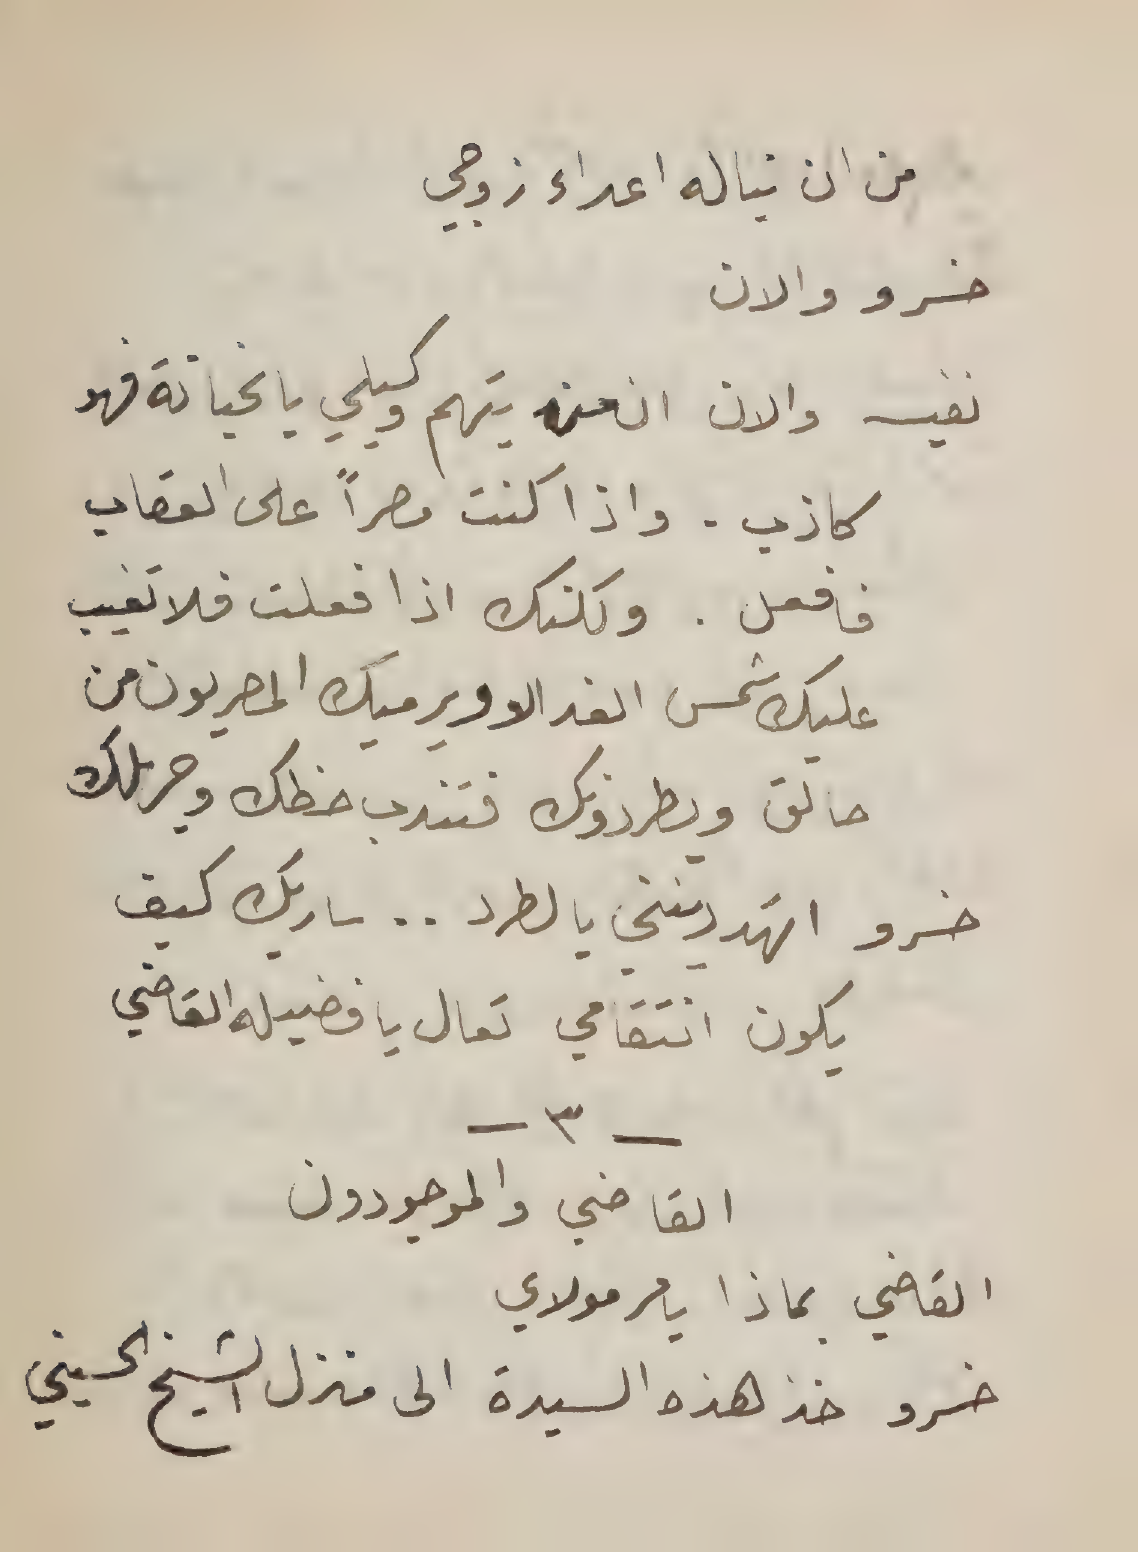 من ان تناله اعداء زوجي
خسرو والان
نفيسه والان ان من يتهم وكيلي بالخيانة فهو
كاذب . واذا كنت مصراً على العقاب
فافعل . ولكنك اذا فعلت فلا تغيب
عليك شمس الغد الا ويرميك المصريون من
حالق ويطردونك فتندب حظك وجر
خسرو اتهددينني بالطرد .. ساريك كيف
يكون انتقامي تعال يا فضيله القاضي
— ٣ —
القاضي والموجودون
القاضي بماذا يامر مولاي
خسرو خذ هذه السيدة الى منزل الشيخ الحسيني